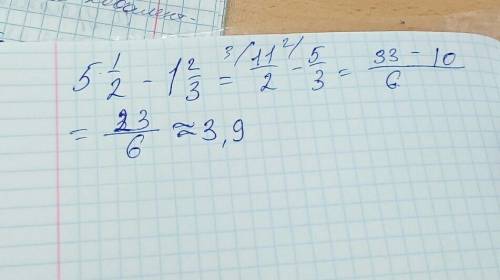 5 1/2 - 1 2/3 = ³/11/2 - ²/5/3 = 33 - 10/6
= 23/6 ≈ 3,9